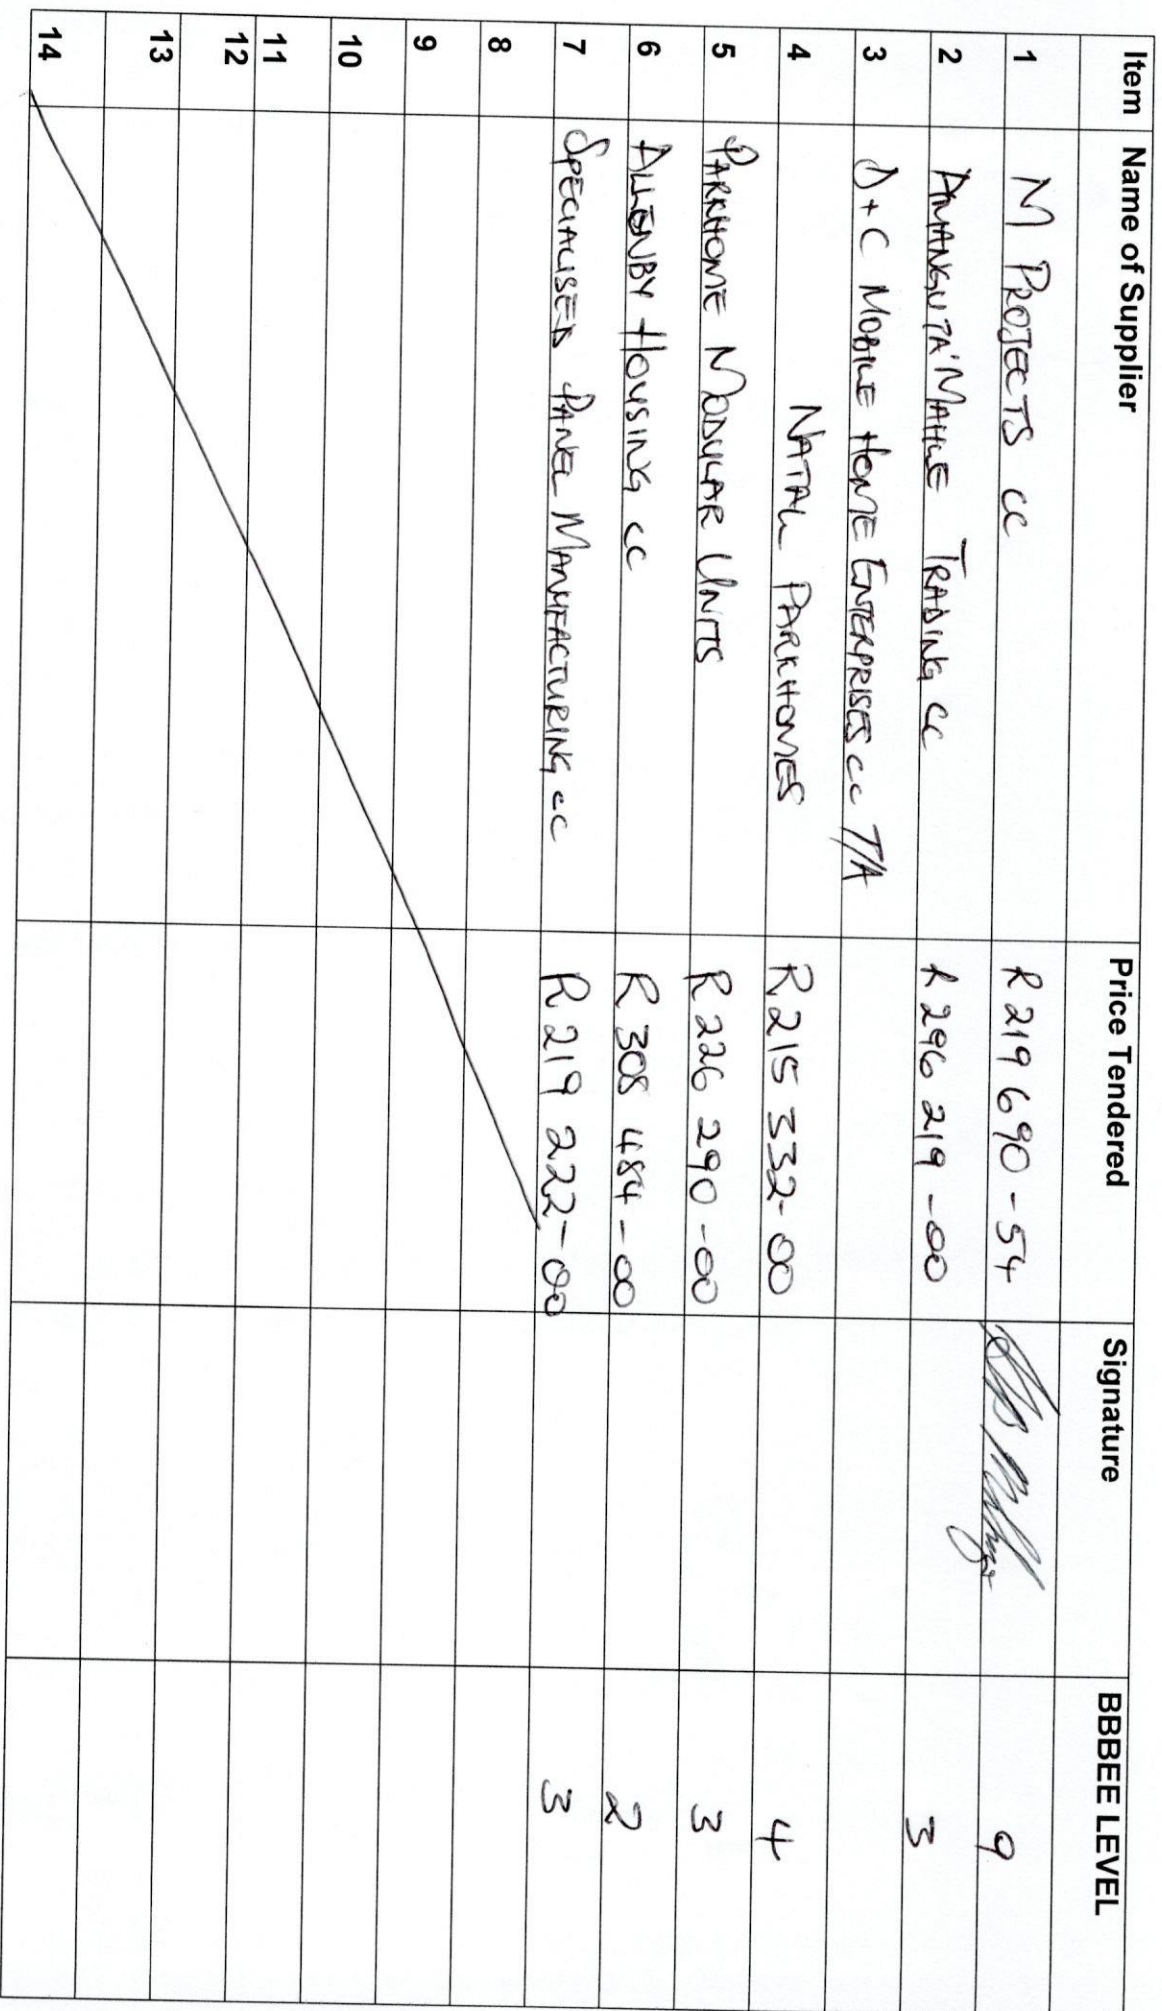 Item Name of Supplier Price Tendered Signature BBBEE LEVEL
1 M PROJECTS CC R 219 690 - 54 9
2 AMANGUTA'MAHLE TRADING CC R 296 219 - 00 3
3 D + C MOBILE HOME ENTERPRISES CC T/A
4 NATAL PARKHOMES R 215 332 - 00 4
5 PARKHOME MODULAR UNITS R 226 290 - 00 3
6 ALLENBY HOUSING CC R 308 484 - 00 2
7 SPECIALISED PANEL MANUFACTURING CC R 219 222 - 00 3
8
9
10
11
12
13
14